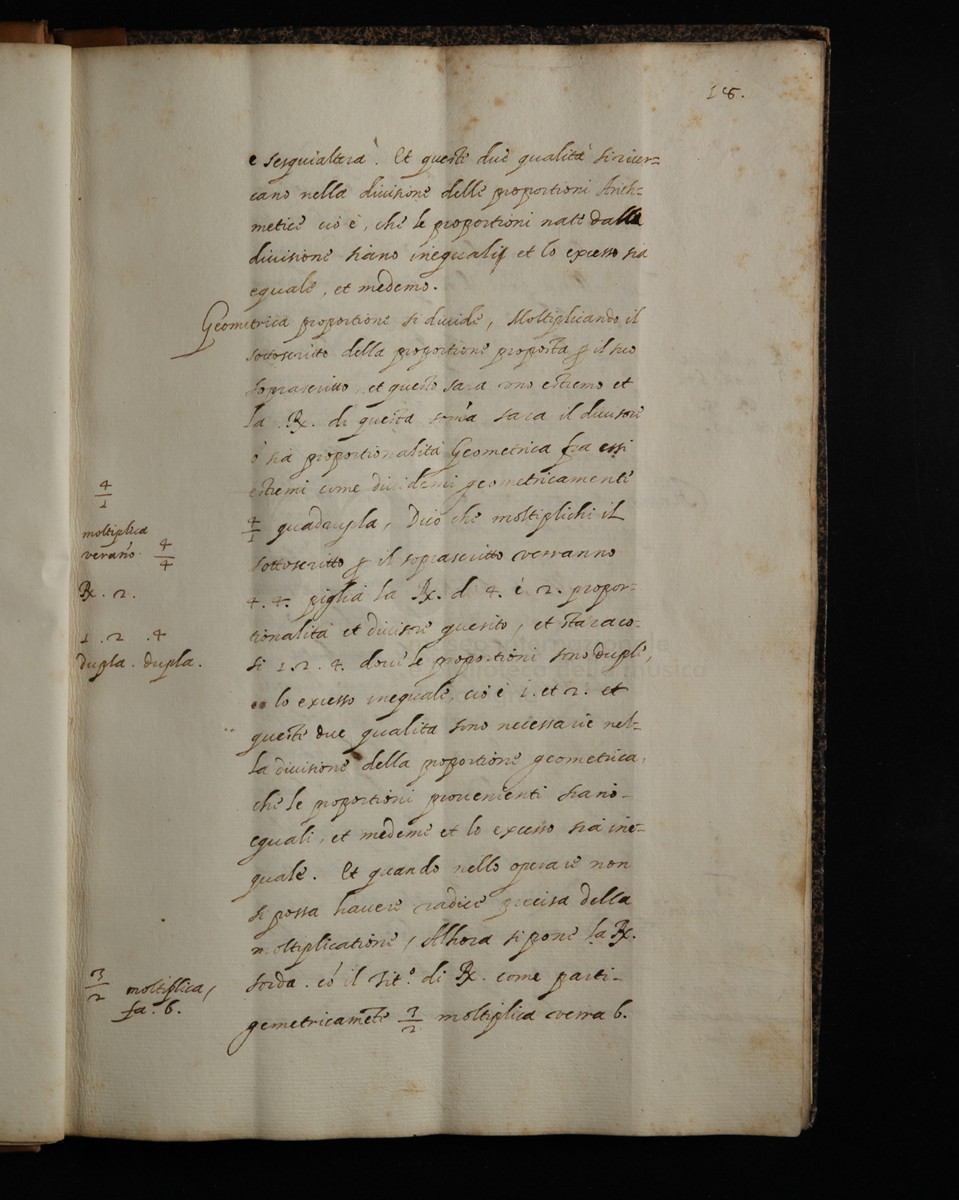 18.
e sesquialtera. Et queste due qualità si ricer=
cano nella divisione delle proportioni Arith=
metice ciò è, che le proportioni nate dalla
divisione siano inequali et lo excesso sia
equale, et medemo.
Geometrica proportione si divide, Moltiplicando il
sottoscritto della proportione proposta ꝑ il suo
soprascritto, et questo sara uno estremo et
la ℞. di questa soma sara il divisore
ò sia proportionalità Geometrica fra essi
estremi come dividemi geometricamente
4/1 quadrupla, Dico che moltiplichi il
sottoscritto ꝑ il soprascritto verranno
4. 4. piglia la ℞. d 4. è 2. propor=
tionalità et divisore quesito, et stara co=
si 1. 2. 4. dove le proportioni sono duple,
lo excesso inequale, ciò è 1. et 2. et
queste due qualita sono necessarie nel=
la divisione della proportione geometrica,
che le proportioni provenienti siano=
equali, et medeme et lo excesso sia ine=
quale. Et quando nello operare non
si possa havere radice precisa della
moltiplicatione, Alhora si pone la ℞.
sorda. cō il tit.º di ℞. come parti=
gemetricamēte 3/2 moltiplica verra 6.
4/1
moltiplica
verano. 4/4
℞. 2.
1. 2. 4
dupla. dupla.
3/2 moltiplica,
fa. 6.